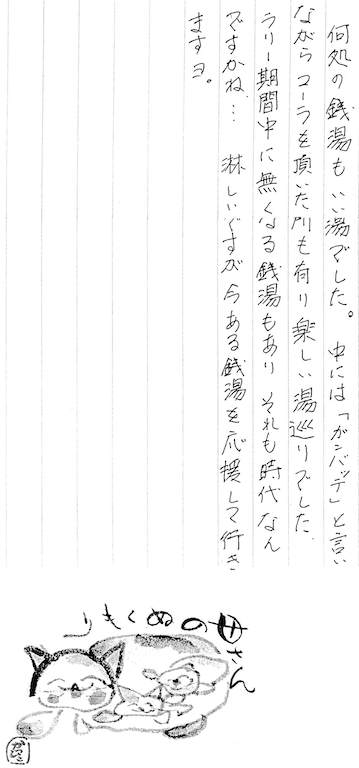 何処の銭湯もいい湯でした。中には「ガンバッテ」と言い
ながらコーラを頂いた所も有り楽しい湯巡りでした。
ラリー期間中に無くなる銭湯もあり それも時代なん
ですかね… 淋しいですが今ある銭湯を応援して行き
ますヨ。
母さん
のぬくもり